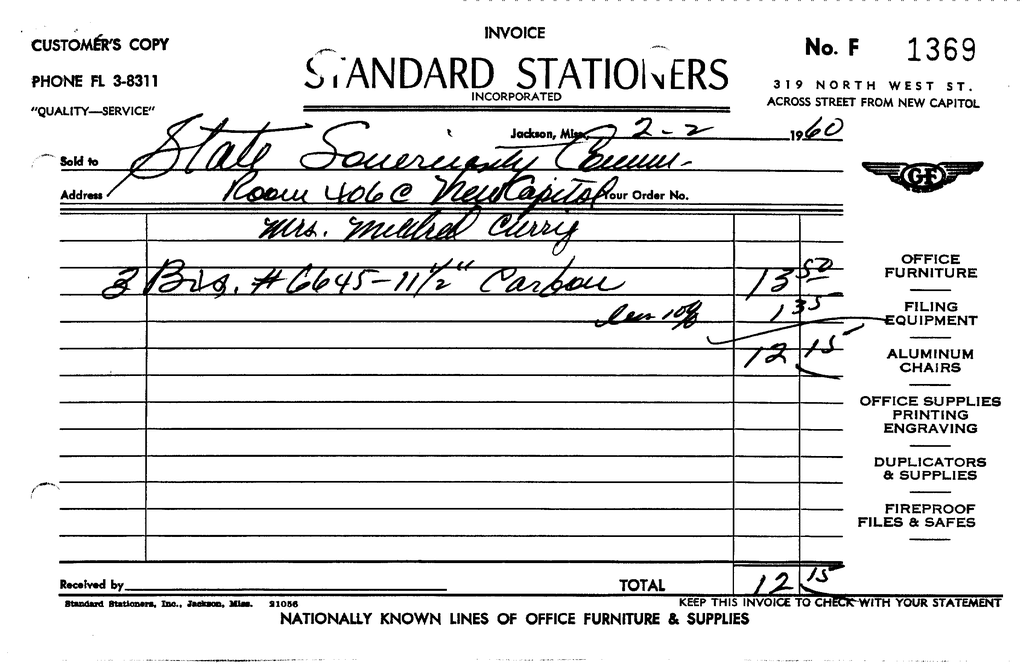 INVOICE
CUSTOMER'S COPY
No. F 1369
PHONE FL 3-8311
STANDARD STATIONERS
INCORPORATED
319 NORTH WEST ST.
"QUALITY—SERVICE"
ACROSS STREET FROM NEW CAPITOL
Jackson, Miss. 2-2 1960
Sold to State Sovereignty Comm.
Address Room 406C New Capitol Your Order No.
GF
Mrs. Mildred Curry
3 Bxs. #6645-11 1/2" Carbon 13 50
less 10% 1 35
12 15
OFFICE
FURNITURE
FILING
EQUIPMENT
ALUMINUM
CHAIRS
OFFICE SUPPLIES
PRINTING
ENGRAVING
DUPLICATORS
& SUPPLIES
FIREPROOF
FILES & SAFES
Received by TOTAL 12 15
Standard Stationers, Inc., Jackson, Miss. 21056
KEEP THIS INVOICE TO CHECK WITH YOUR STATEMENT
NATIONALLY KNOWN LINES OF OFFICE FURNITURE & SUPPLIES